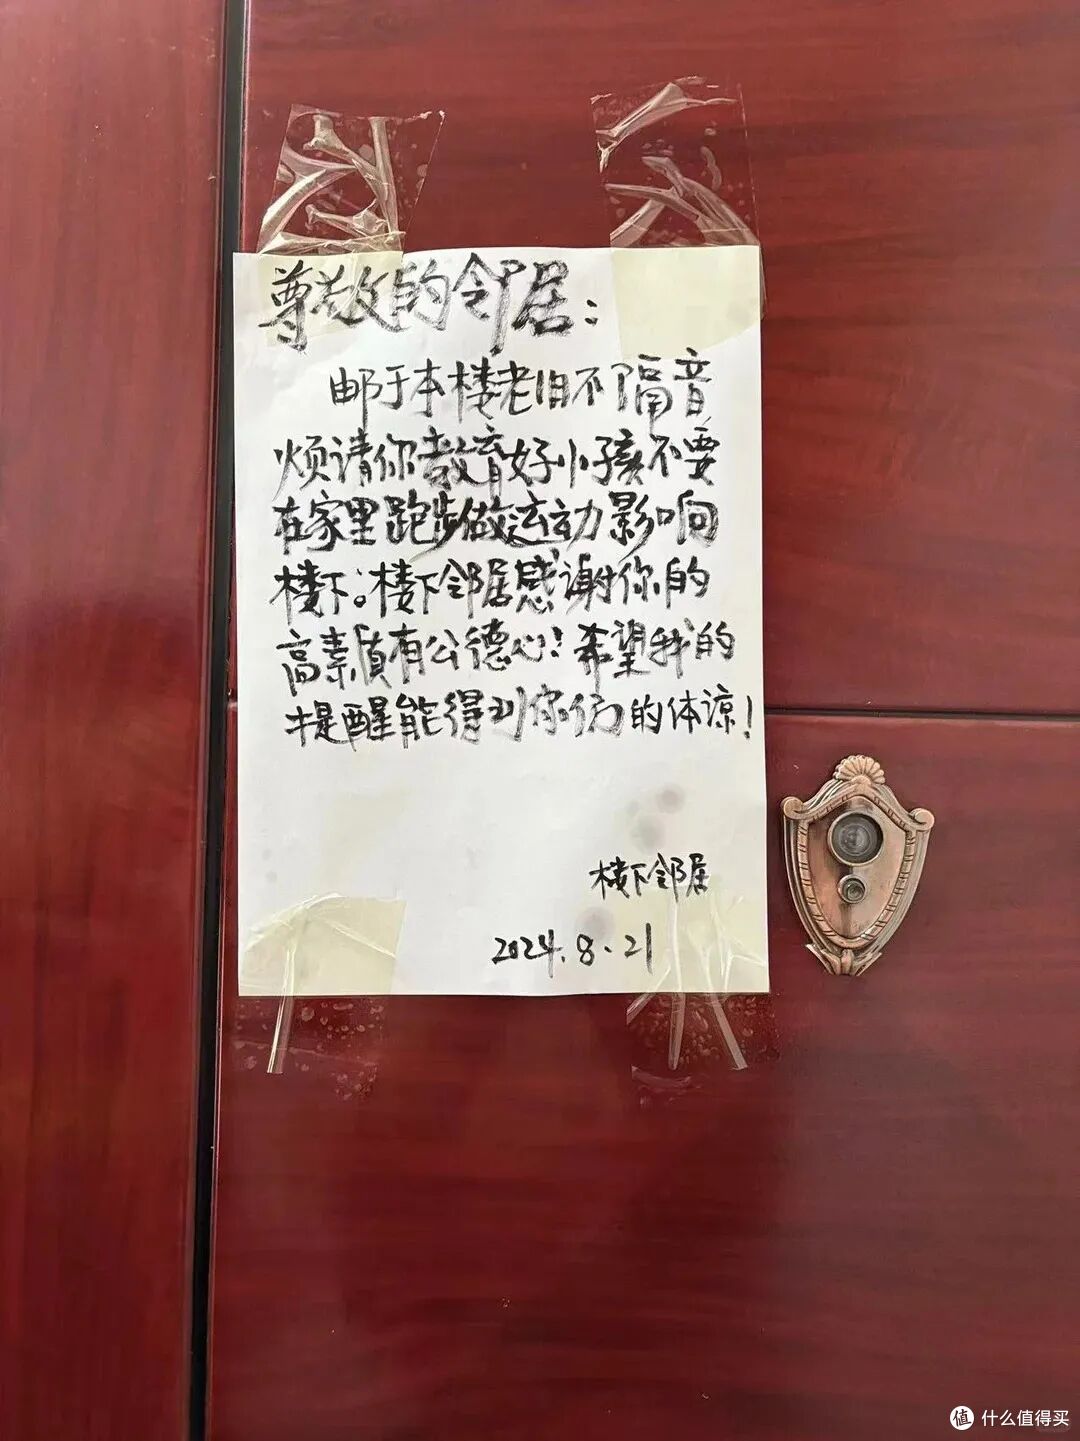 尊敬的邻居：
邮于本楼老旧不隔音
烦请你教育好小孩不要
在家里跑步做运动影响
楼下。楼下邻居感谢你的
高素质有公德心！希望我的
提醒能得到你们的体谅！
楼下邻居
2024.8.21
值 什么值得买